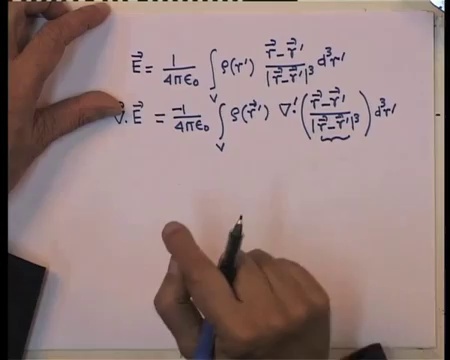 E⃗ = 1/4πε₀ ∫_V ρ(r⃗') (r⃗ - r⃗')/|r⃗ - r⃗'|³ d³r'
∇⃗·E⃗ = -1/4πε₀ ∫_V ρ(r⃗') ∇'·((r⃗ - r⃗')/|r⃗ - r⃗'|³) d³r'